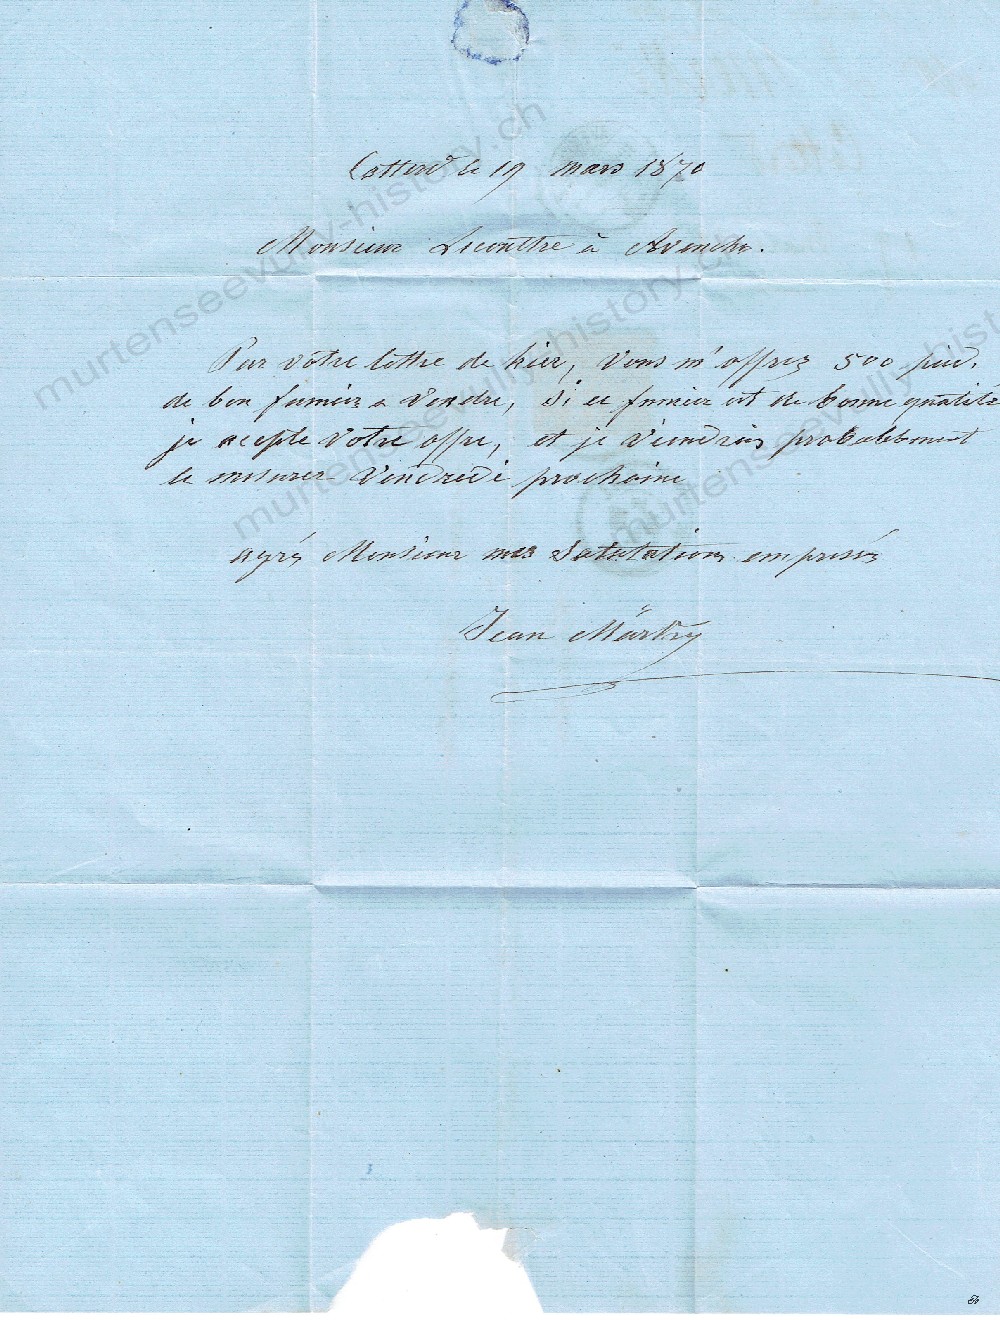 Cotterd le 19 mars 1870
Monsieur Lecomtre à Avenche.
Par votre lettre de hier, Vous m'offrez 500 pied.
de bon fumier a Vendre, si ce fumier est de bonne qualité
je acepte Votre offre, et je Viendrais probablement
le mesurer Vendredi prochaine
agrés Monsieur mes Salutations emprisés
Jean
murtenseevully-history.ch
murtenseevully-history.ch
murtenseevully-history.ch